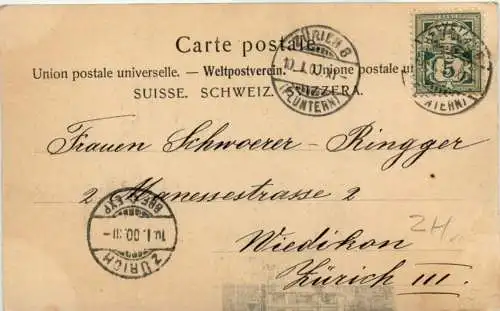 Carte postale.
Union postale universelle. — Weltpostverein. — Unione postale
SUISSE. SCHWEIZ. SVIZZERA.
ZÜRICH 8
10. I. 00.
(FLUNTERN)
5
Frauen Schwoerer-Ringger
2 Manessestrasse 2
Wiedikon
Zürich III.
ZH
BRF. EXP.
10. I. 00. III
ZÜRICH